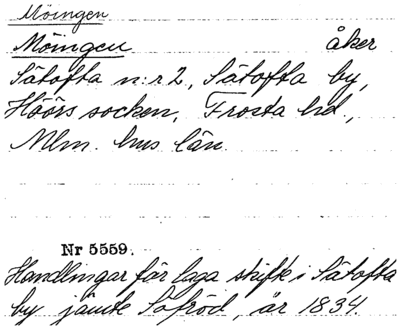 Möingen
Möingen åker
Sätofta n:r 2, Sätofta by,
Höörs socken, Frosta hd,
Mlm. hus län.
Nr 5559.
Handlingar för laga skifte i Sätofta
by jämte Sofröd, år 1834.